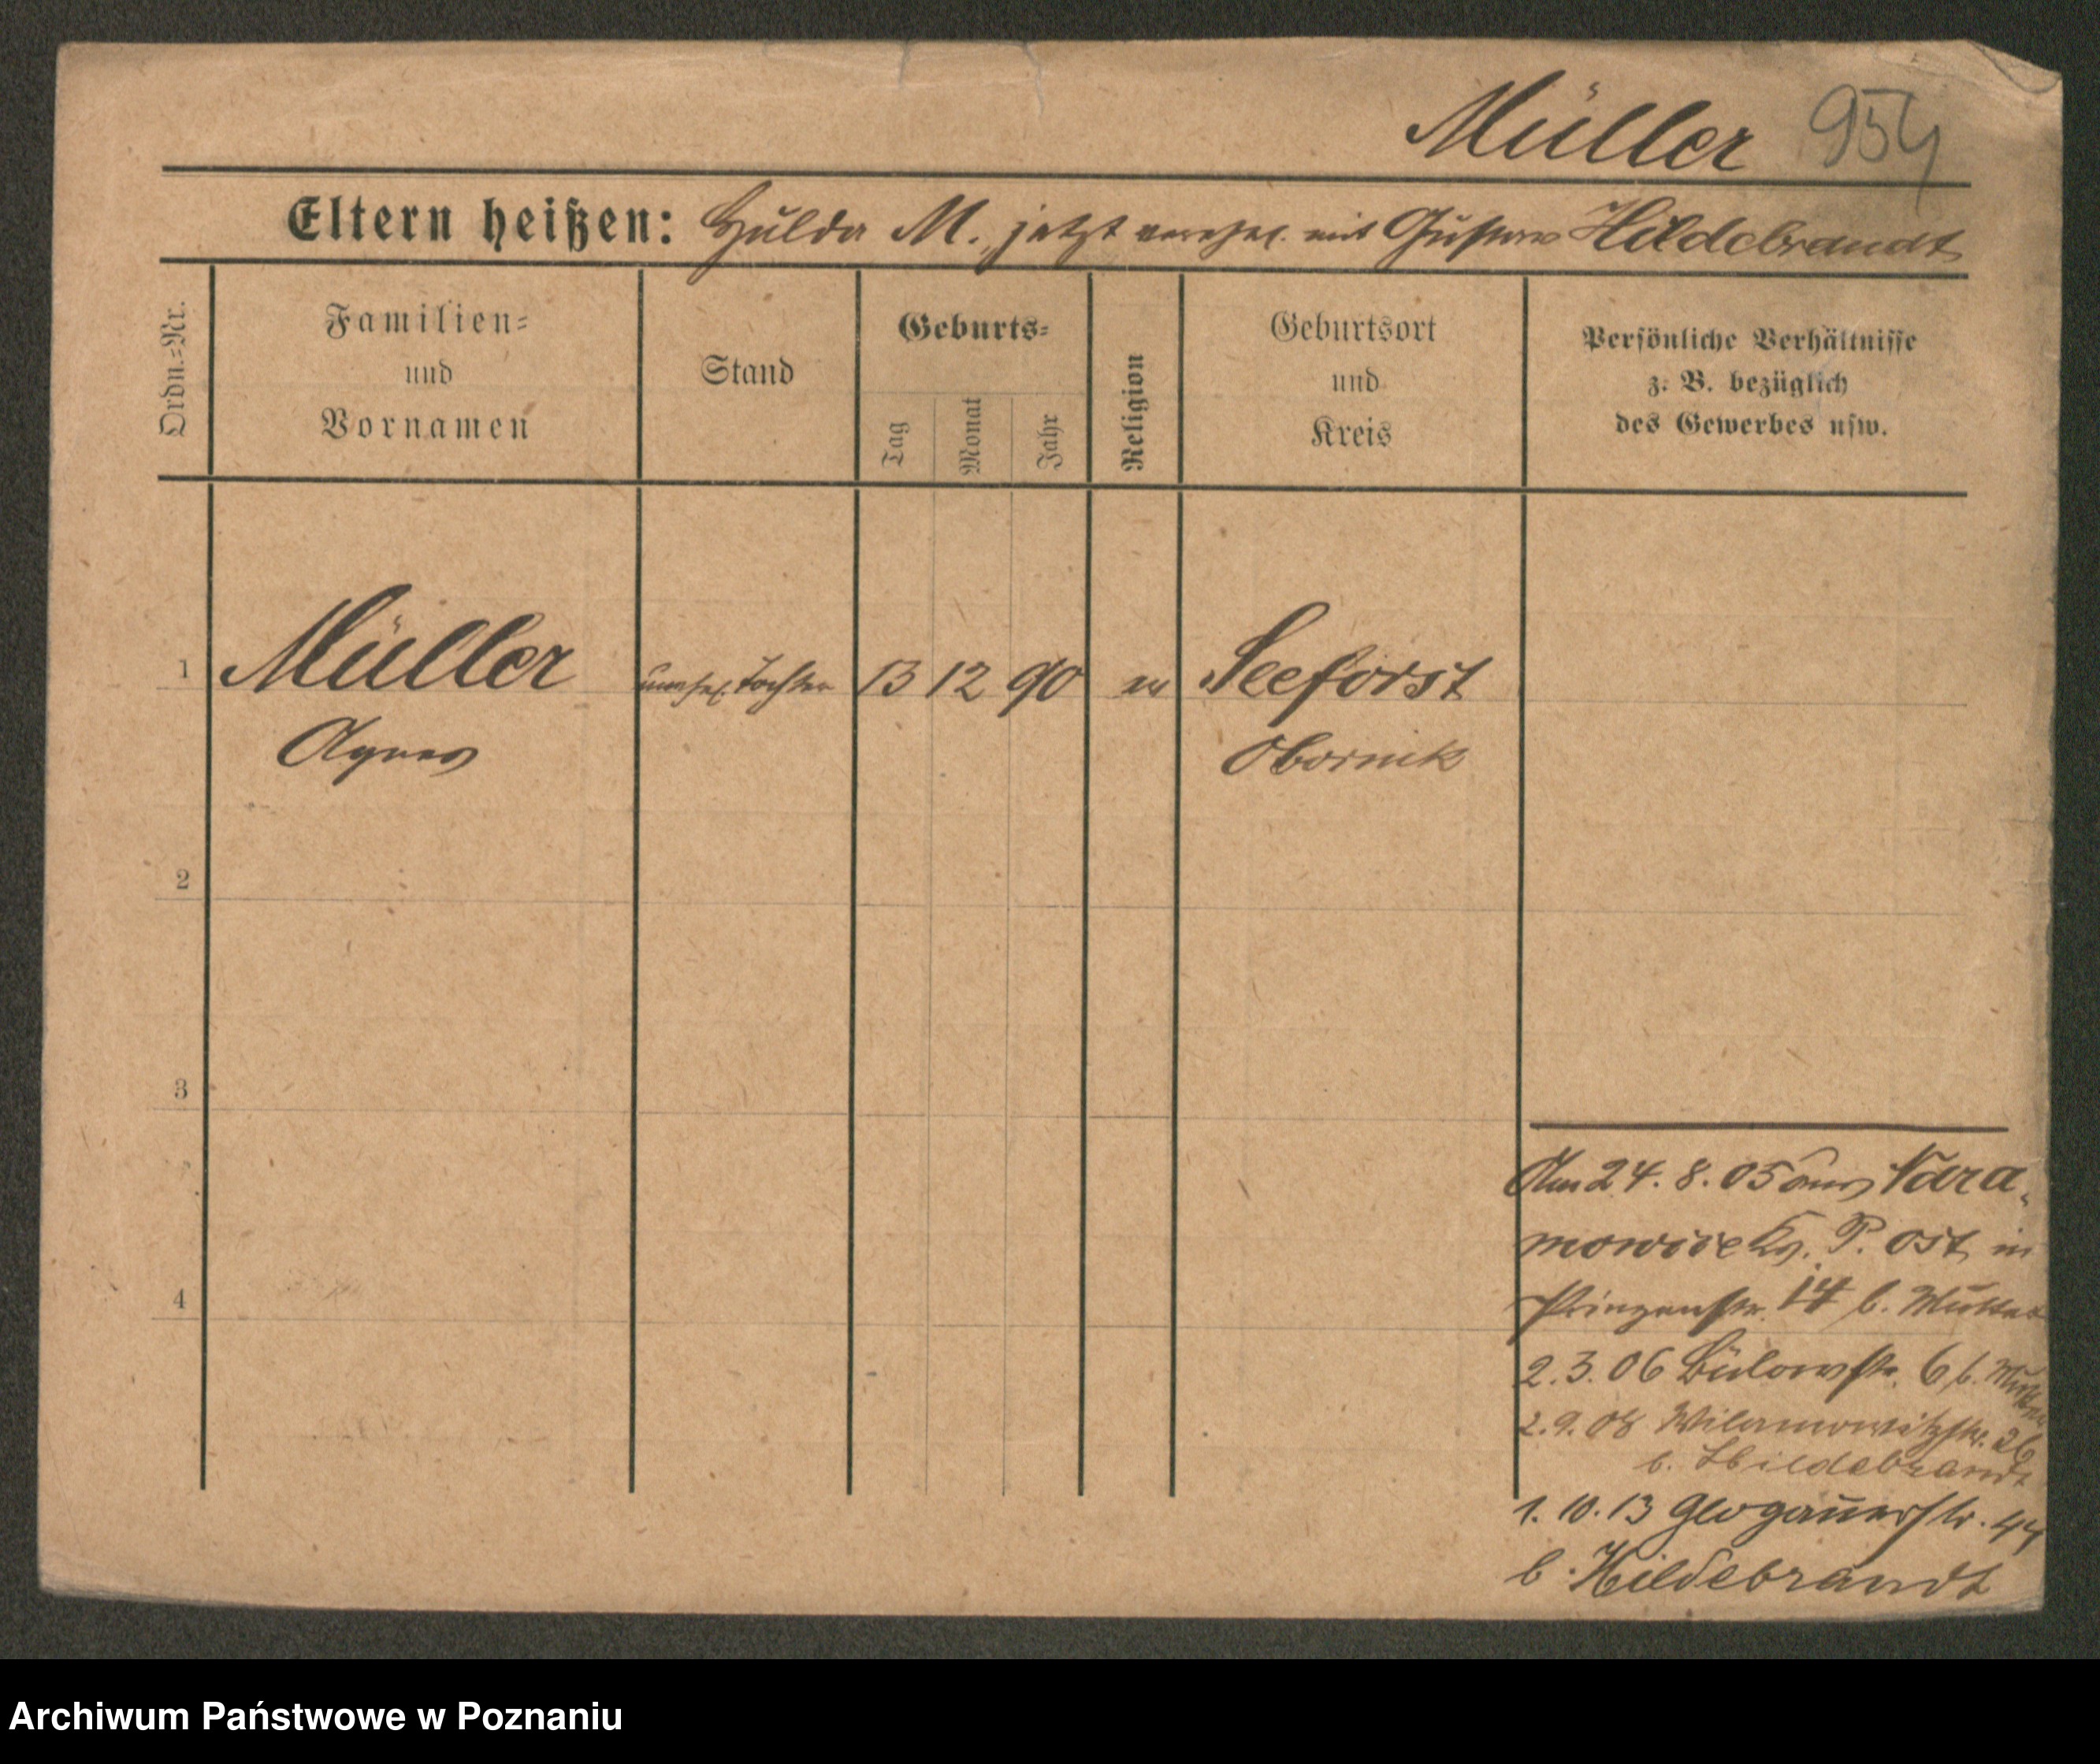 Müller 954
Eltern heißen: Hulda M. jetzt verehel. mit Gustav Hildebrandt
Ordn.=Nr.
Familien=
und
Vornamen
Stand
Geburts=
Tag
Monat
Jahr
Religion
Geburtsort
und
Kreis
Persönliche Verhältnisse
z. B. bezüglich
des Gewerbes usw.
1 Müller unehel. Tochter 13 12 90 ev Seeforst
Agnes Obornik
2
3
4
Am 24. 8. 05 aus Nara-
mowice Kr. P. Ost in
Prinzenstr. 14 b. Mutter
2. 3. 06 Bülowstr. 6 b. Mutter
2. 9. 08 Wilamowitzstr. 26
b. Hildebrandt
1. 10. 13 Glogauerstr. 44
b. Hildebrandt
Archiwum Państwowe w Poznaniu